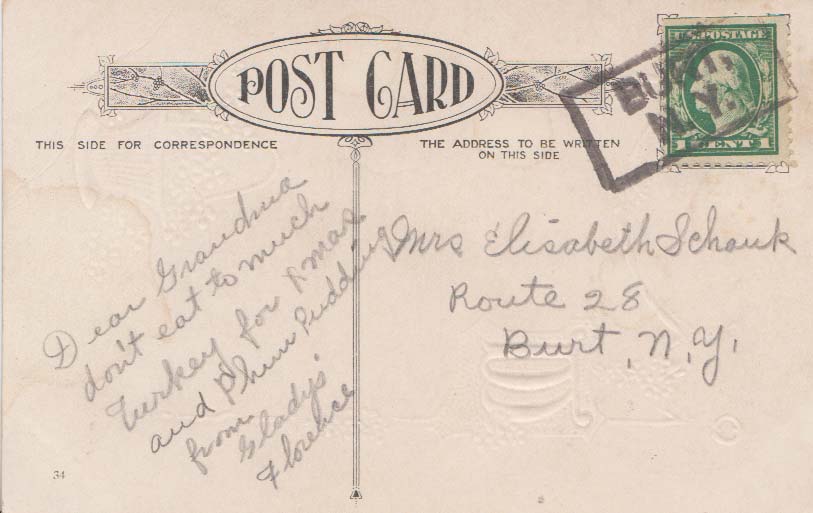 POST CARD
U.S. POSTAGE
BURT,
N.Y.
1 CENT 1
THIS SIDE FOR CORRESPONDENCE
THE ADDRESS TO BE WRITTEN
ON THIS SIDE
Dear Grandma
don't eat to much
Turkey for Xmas
and Plum Pudding
from
Gladys
Florence
Mrs Elisabeth Schauk
Route 28
Burt, N.Y.
34